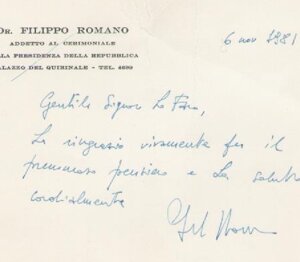 DR. FILIPPO ROMANO
ADDETTO AL CERIMONIALE
LLA PRESIDENZA DELLA REPUBBLICA
ALAZZO DEL QUIRINALE - TEL. 4689
6 nov 1981
Gentile Signor Lo Faro,
La ringrazio vivamente per il
premuroso pensiero e La saluto
cordialmente